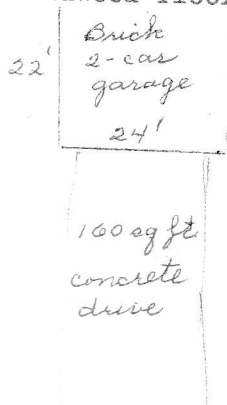 Brick
22' 2-car
garage
24'
160 sq ft
concrete
drive